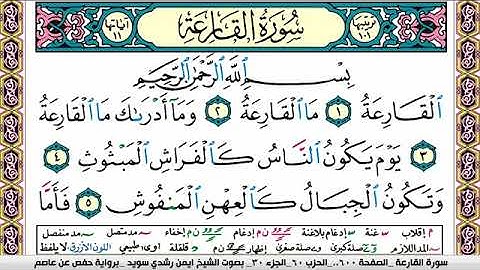 سُورَةُ القَارِعَةِ
بِسْمِ اللَّهِ الرَّحْمَٰنِ الرَّحِيمِ
الْقَارِعَةُ ١ مَا الْقَارِعَةُ ٢ وَمَا أَدْرَىٰكَ مَا الْقَارِعَةُ
٣ يَوْمَ يَكُونُ النَّاسُ كَالْفَرَاشِ الْمَبْثُوثِ ٤
وَتَكُونُ الْجِبَالُ كَالْعِهْنِ الْمَنفُوشِ ٥ فَأَمَّا
م إقلاب غنة إدغام بلاغنة ن م إدغام ن م إخفاء مد متصل مد منفصل
المد اللازم صلة كبرى صلة صغرى إظهار ن م قلقلة اوى طبيعي اللون الأزرق لا يلفظ
سورة القارعة _ الصفحة ٦٠٠ _ الحزب ٦٠ _ الجزء ٣٠ _ بصوت الشيخ ايمن رشدي سويد _ برواية حفص عن عاصم